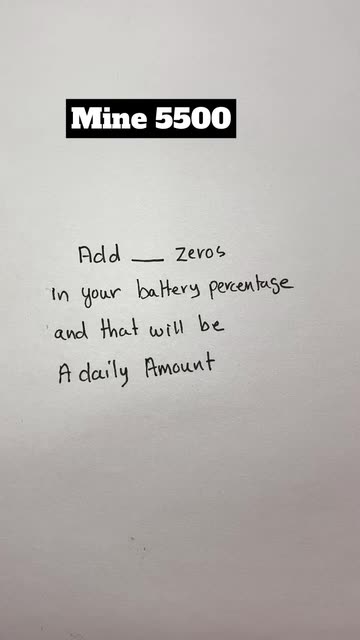 Mine 5500
Add __ zeros
in your battery percentage
and that will be
A daily Amount